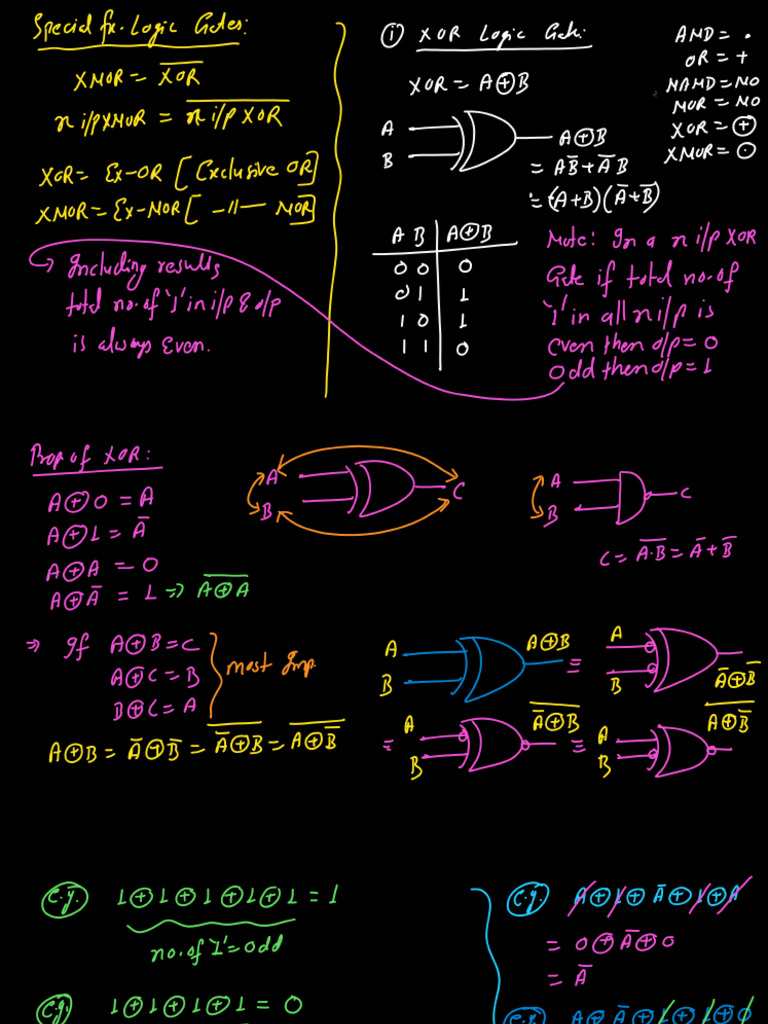 Special fx. Logic Gates:
XNOR = X̅O̅R̅
n i/p XNOR = n̅ ̅i̅/̅p̅ ̅X̅O̅R̅
XOR = Ex-OR [Exclusive OR]
XNOR = Ex-NOR [ -11- NOR]
↪ Including results
total no. of '1' in i/p & o/p
is always Even.
① XOR Logic Gate:
XOR = A⊕B
A
B
A⊕B
= AB̅ + A̅B
= (A+B)(A̅+B̅)
AND = •
OR = +
NAND = NO
NOR = NO
XOR = ⊕
XNOR = ⊙
A B | A⊕B
0 0 | 0
0 1 | 1
1 0 | 1
1 1 | 0
Note: In a n i/p XOR
Gate if total no. of
'1' in all n i/p is
even then o/p = 0
odd then o/p = 1
Prop of XOR:
A⊕0 = A
A⊕1 = A̅
A⊕A = 0
A⊕A̅ = 1 => A̅⊕̅A̅
A
B
C
A
B
C
C = A̅.̅B̅ = A̅ + B̅
=> If A⊕B = C
A⊕C = B
B⊕C = A
} most Imp.
A⊕B = A̅⊕B̅ = \overline{A̅⊕B} = \overline{A⊕B̅}
A
B
A⊕B
=
A
B
A̅⊕B̅
=
A
B
\overline{A̅⊕B}
=
A
B
\overline{A⊕B̅}
e.g. 1⊕1⊕1⊕1⊕1 = 1
no. of 1' = odd
e.g. 1⊕1⊕1⊕1 = 0
e.g. A⊕1⊕A̅⊕1⊕A
= 0⊕A̅⊕0
= A̅
e.g. A⊕A̅⊕1⊕1⊕0